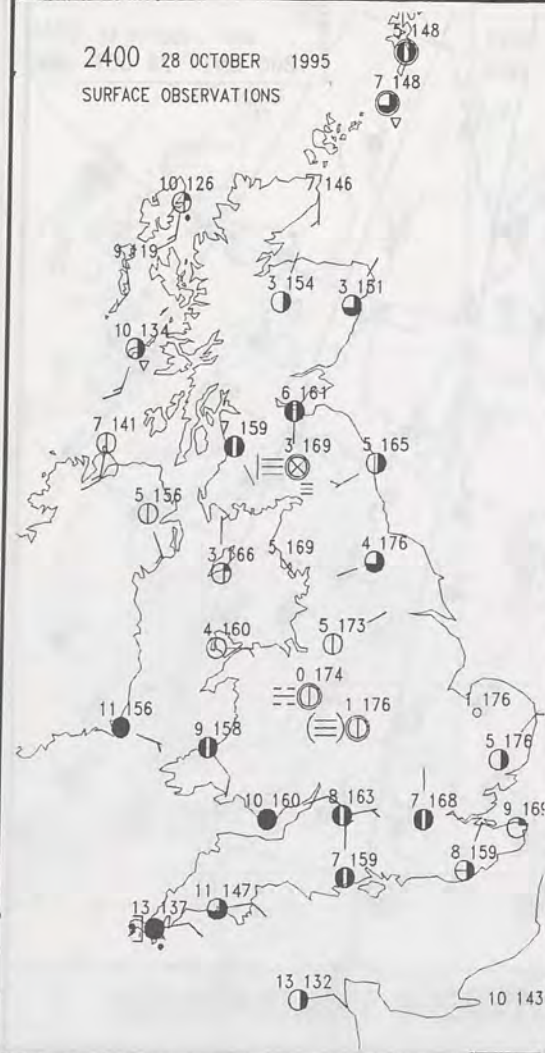 2400 28 OCTOBER 1995
SURFACE OBSERVATIONS
5 148
7 148
10 126
7 146
9 119
3 154
3 151
10 134
6 161
7 141
7 159
3 169
5 165
5 156
3 166
5 169
4 176
4 160
5 173
0 174
1 176
1 176
11 156
9 158
5 176
10 160
8 163
7 168
9 169
7 159
8 159
11 147
13 137
13 132
10 143